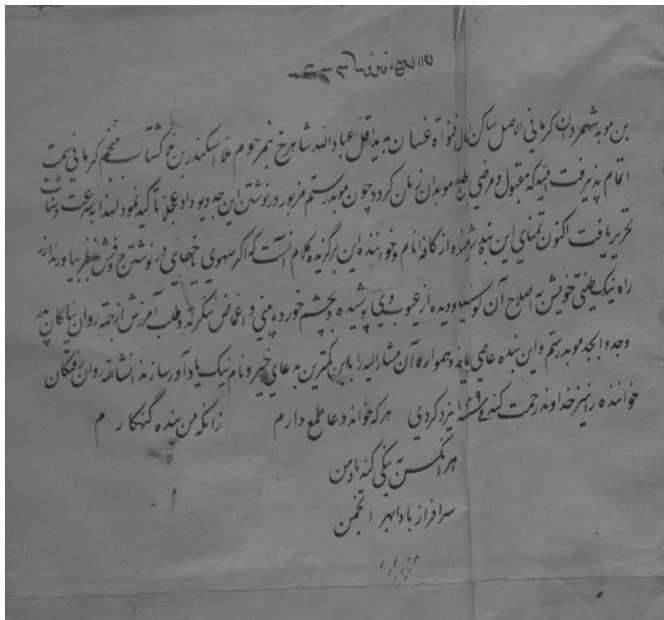 بن موبد شهمردان کرمانی الاصل ساکن عباد الله شاهرخ بن مرحوم ملا اسکندر بن ملا گشتاسب منجم کرمانی سمت
اتمام پذیرفت امید که مقبول و مرضی طبع موبدان زمان گردد چون موبد رستم مزبور در نوشتن این جد دیو داد عجلتا تاکید نمود لهذا بسرعت و
تحریر یافت اکنون تمنای این بنده شرمنده از کافه انام و خواننده این برگزیده کلام آنست که اگر سهوی در نوشتن بنظر بیاورند از
راه نیک طینتی خویش به اصلاح آن کوشند و دیده از عیوب وی پوشیده و بچشم خورده بینی و اغماض ننگرند و طلب آمرزش از جهته روان نیاکان پدر
وجد و ابجد موبد رستم و این بنده عاصی و همواره آن مشار الیه را با این کمترین بدعای خیر و نام نیک یادآور سازند انشاالله روان رفتگان
خواننده را نیز خداوند رحمت کند سنه یزدگردی هر که خواند دعا طمع دارم زانکه من بنده گنهکارم
هر آنکس به نیکی کند یاد من
سرافراز بادا بهر انجمن